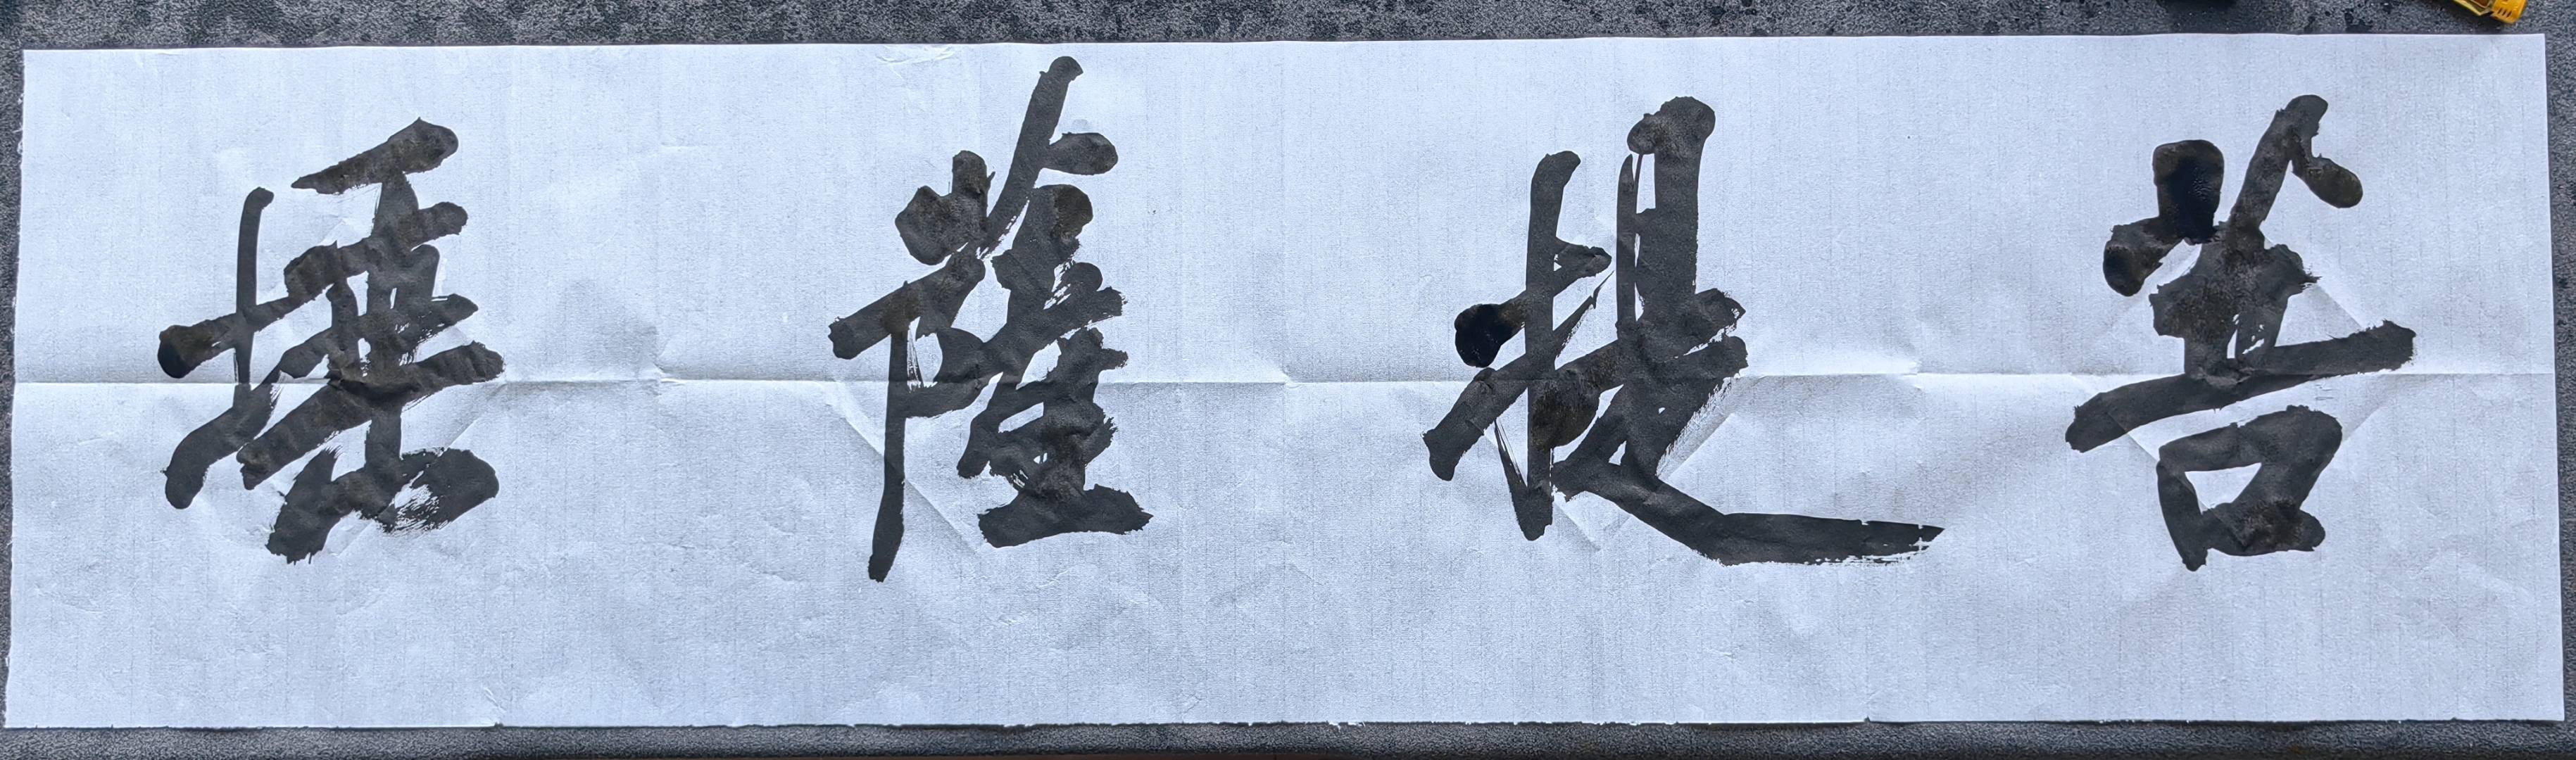 菩提薩埵